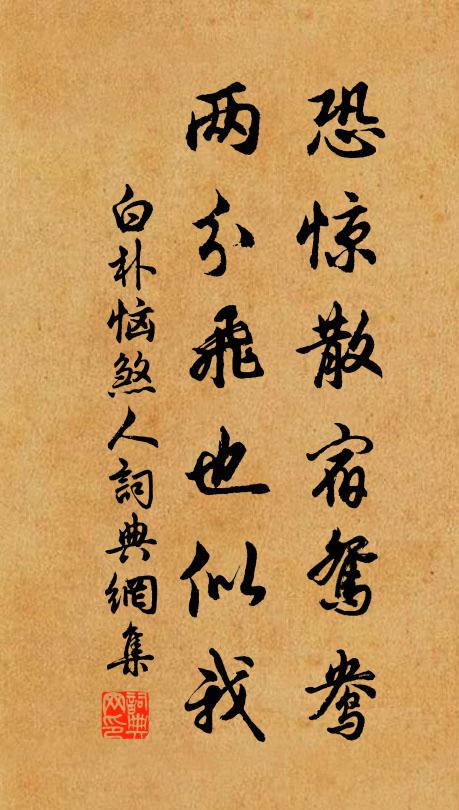 恐惊散宿鸳鸯
两分飞也似我
白朴恼煞人詞典網集
詞典网印